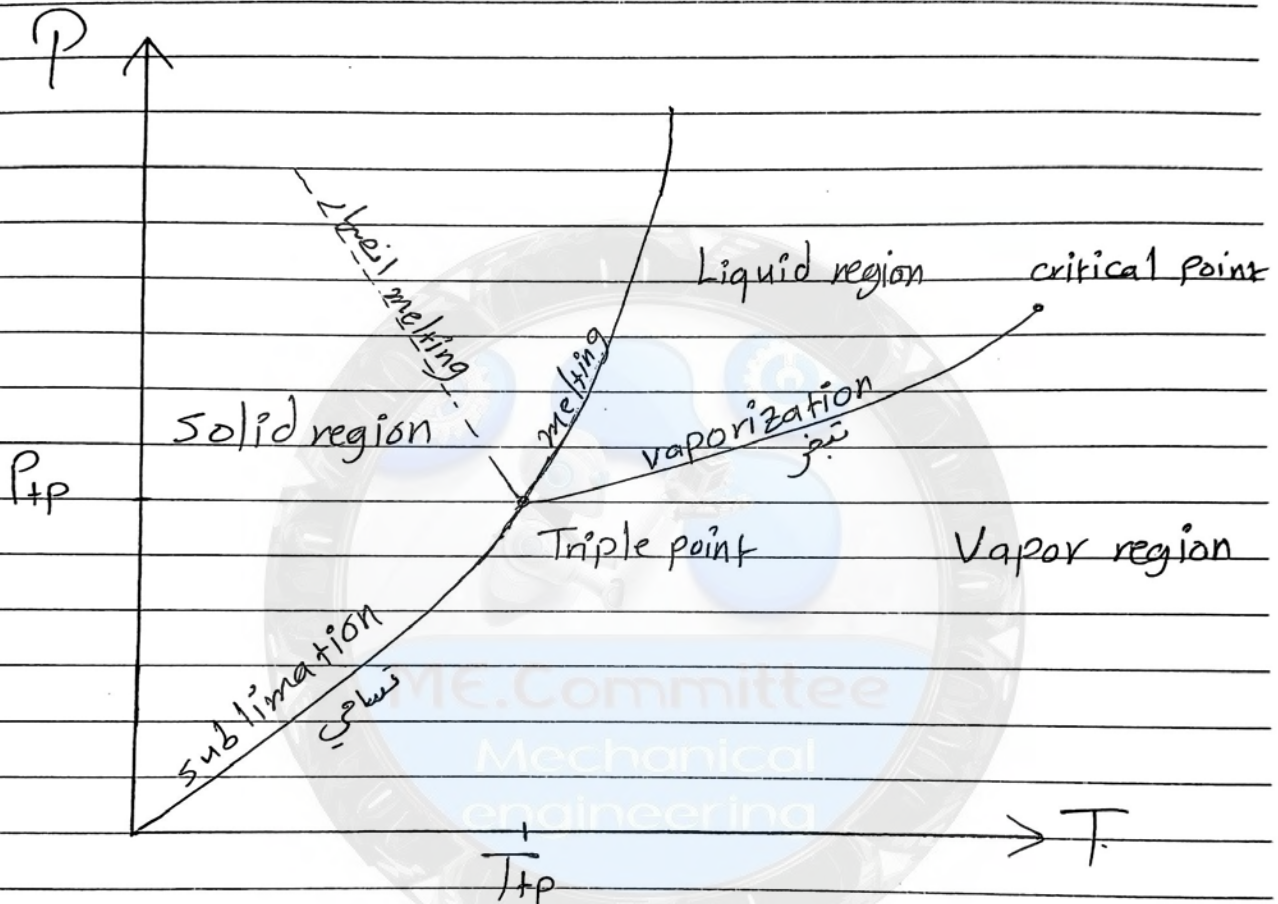 P
Liquid region
critical point
melting
melting
Solid region
vaporization
تبخر
Ptp
Triple point
Vapor region
sublimation
تسامي
ME.Committee
Mechanical
engineering
T
Ttp